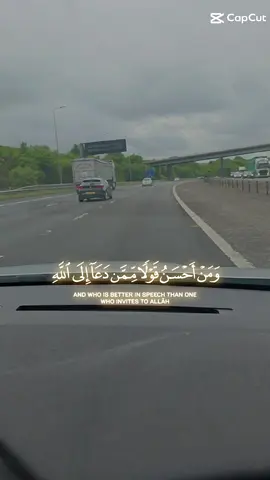 CapCut
وَمَنْ أَحْسَنُ قَوْلًا مِّمَّن دَعَآ إِلَى ٱللَّهِ
AND WHO IS BETTER IN SPEECH THAN ONE
WHO INVITES TO ALLĀH